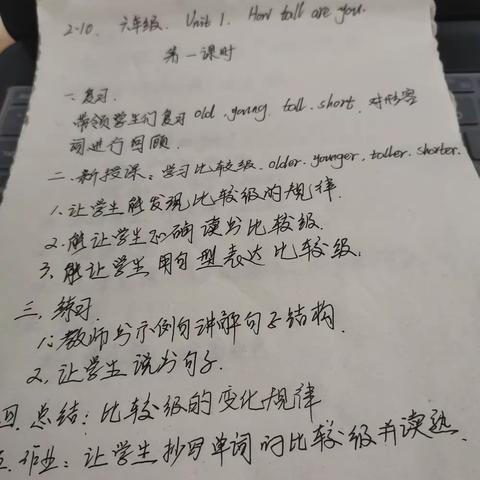 2-10. 六年级. Unit 1. How tall are you.
第一课时
一、复习.
带领学生们复习 old, young, tall, short, 对形容
词进行回顾.
二、新授课: 学习比较级. older. younger. taller. shorter.
1. 让学生能发现比较级的规律.
2. 能让学生正确读出比较级.
3. 能让学生用句型表达比较级.
三、练习.
1. 教师写示例句讲解句子结构.
2. 让学生说出句子.
四. 总结: 比较级的变化规律
五. 作业: 让学生抄写单词的比较级并读熟.